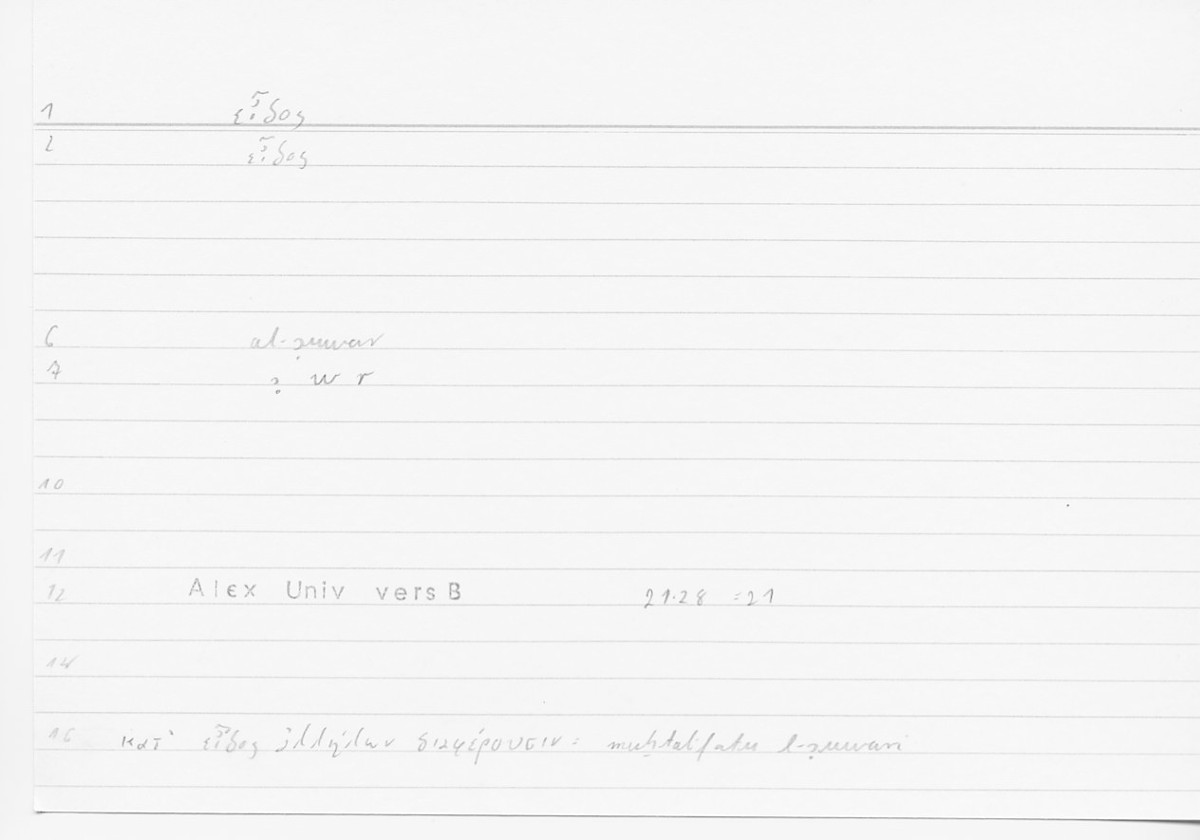 1 εἶδος
2 εἶδος
6 al-ṣuwar
7 ṣ w r
10
11
12 Alex Univ vers B 21.28 = 21
14
16 κατ' εἶδος ἀλλήλων διαφέρουσιν = muḫtalifatu l-ṣuwari